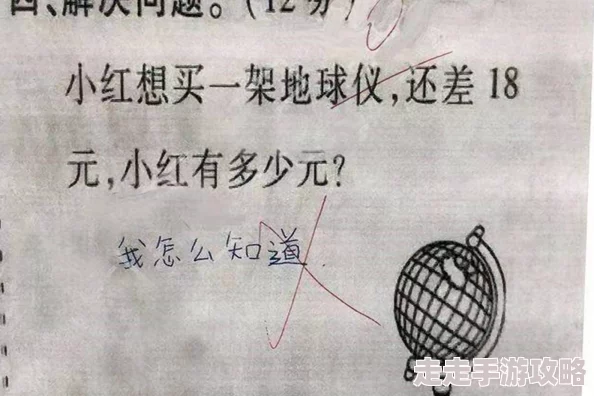 四、解决问题。(12分)
小红想买一架地球仪,还差 18
元,小红有多少元?
我怎么知道.
走走手游攻略